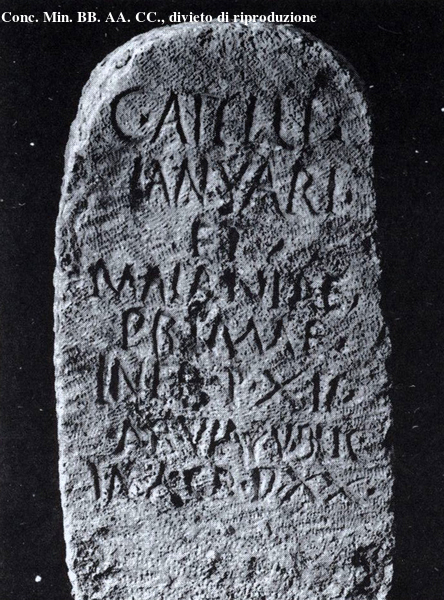 Conc. Min. BB. AA. CC., divieto di riproduzione
IANVARI·
ET
MAIANIAE
PRIMAE
INFR·P·XII·
VIA PVBLIC
IN AGR·P·XX·